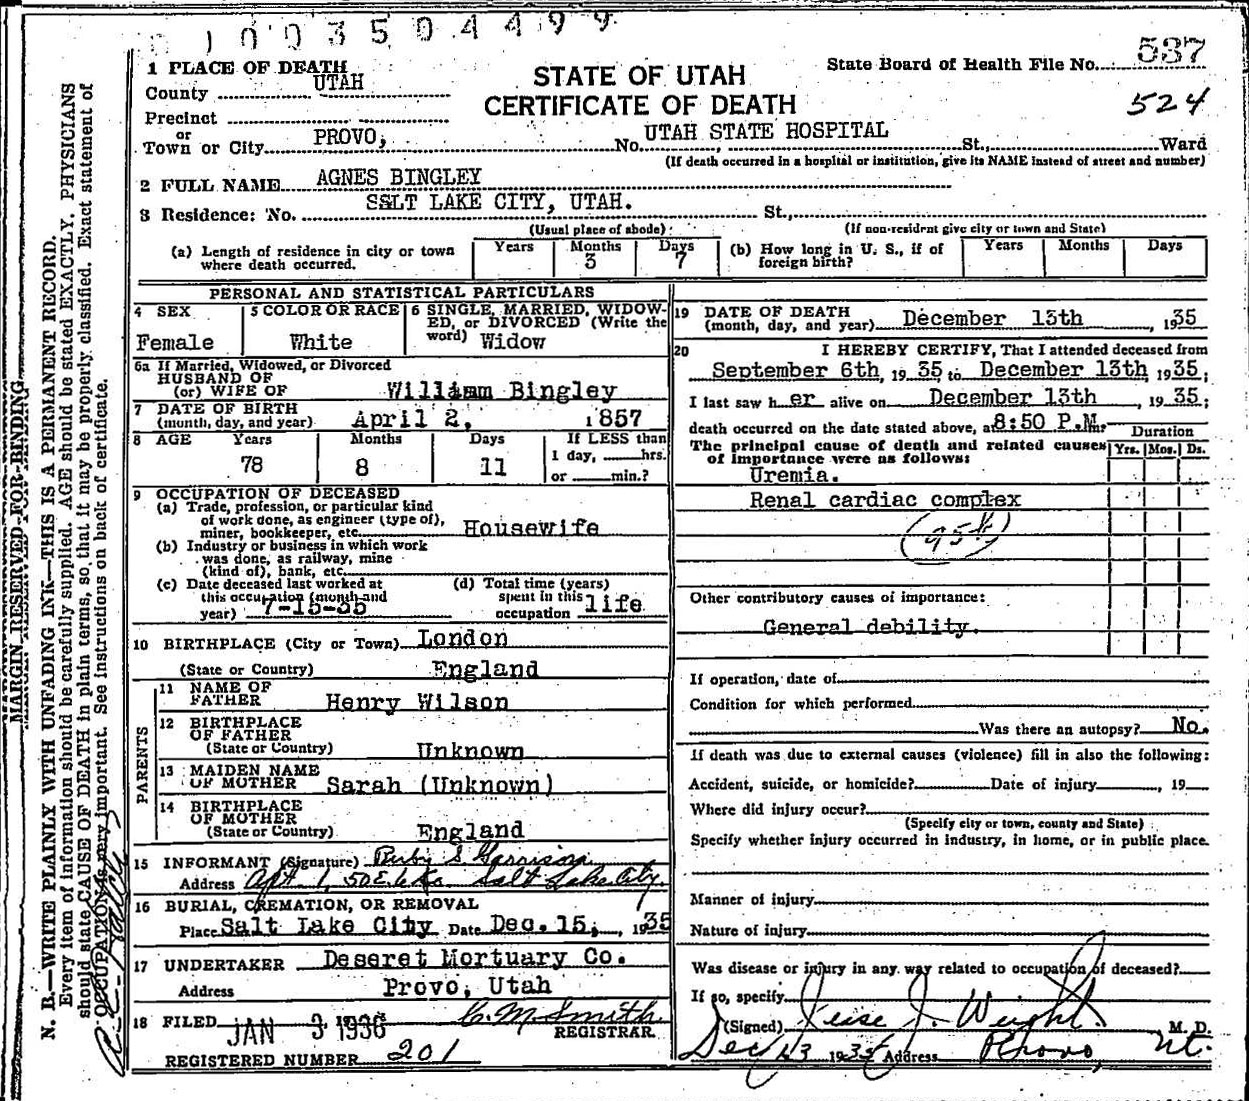 1003504499
1 PLACE OF DEATH
County UTAH
STATE OF UTAH
CERTIFICATE OF DEATH
State Board of Health File No. 537
524
Precinct
or
Town or City PROVO, No. UTAH STATE HOSPITAL St., Ward
(If death occurred in a hospital or institution, give its NAME instead of street and number)
2 FULL NAME AGNES BINGLEY
3 Residence: No. SALT LAKE CITY, UTAH. St.,
(Usual place of abode) (If non-resident give city or town and State)
(a) Length of residence in city or town where death occurred. Years Months 3 Days 7
(b) How long in U. S., if of foreign birth? Years Months Days
PERSONAL AND STATISTICAL PARTICULARS
4 SEX
Female
5 COLOR OR RACE
White
6 SINGLE, MARRIED, WIDOW-
ED, or DIVORCED (Write the
word) Widow
6a If Married, Widowed, or Divorced
HUSBAND OF
(or) WIFE OF William Bingley
7 DATE OF BIRTH
(month, day, and year) April 2, 1857
8 AGE Years Months Days If LESS than
78 8 11 1 day, hrs.
or min.?
9 OCCUPATION OF DECEASED
(a) Trade, profession, or particular kind
of work done, as engineer (type of),
miner, bookkeeper, etc. Housewife
(b) Industry or business in which work
was done, as railway, mine
(kind of), bank, etc.
(c) Date deceased last worked at
this occupation (month and
year) 7-15-35
(d) Total time (years)
spent in this
occupation life
10 BIRTHPLACE (City or Town) London
(State or Country) England
PARENTS
11 NAME OF
FATHER Henry Wilson
12 BIRTHPLACE
OF FATHER
(State or Country) Unknown
13 MAIDEN NAME
OF MOTHER Sarah (Unknown)
14 BIRTHPLACE
OF MOTHER
(State or Country) England
15 INFORMANT (Signature) Ruby S. Garrison
Address Apt. 1, 50 E. Salt Lake City.
16 BURIAL, CREMATION, OR REMOVAL
Place Salt Lake City Date Dec. 15, 1935
17 UNDERTAKER Deseret Mortuary Co.
Address Provo, Utah
18 FILED JAN 3 1936 C. M. Smith
REGISTRAR.
REGISTERED NUMBER 201
19 DATE OF DEATH
(month, day, and year) December 13th, 1935
20 I HEREBY CERTIFY, That I attended deceased from
September 6th, 1935, to December 13th, 1935;
I last saw her alive on December 13th, 1935;
death occurred on the date stated above, at 8:50 P.M.
The principal cause of death and related causes
of importance were as follows:
Duration
Yrs. Mos. Ds.
Uremia.
Renal cardiac complex
Other contributory causes of importance:
General debility.
If operation, date of
Condition for which performed
Was there an autopsy? No.
If death was due to external causes (violence) fill in also the following:
Accident, suicide, or homicide? Date of injury, 19
Where did injury occur?
(Specify city or town, county and State)
Specify whether injury occurred in industry, in home, or in public place.
Manner of injury
Nature of injury
Was disease or injury in any way related to occupation of deceased?
If so, specify
(Signed) Jesse J. Weight M. D.
Dec 13 1935 Address Provo, Ut.
MARGIN RESERVED FOR BINDING
N. B.—WRITE PLAINLY WITH UNFADING INK—THIS IS A PERMANENT RECORD.
Every item of information should be carefully supplied. AGE should be stated EXACTLY. PHYSICIANS
should state CAUSE OF DEATH in plain terms, so that it may be properly classified. Exact statement of
OCCUPATION is very important. See instructions on back of certificate.